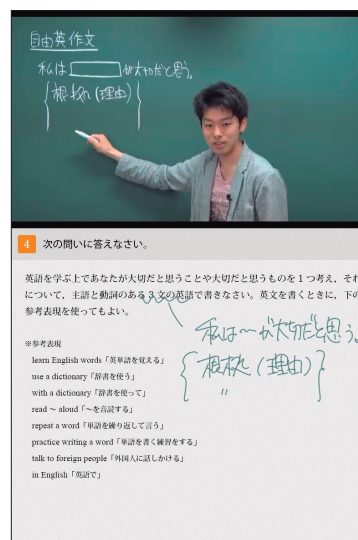 自由英作文
私は　　　　が大切だと思う。
根拠(理由)
4 次の問いに答えなさい。
英語を学ぶ上であなたが大切だと思うことや大切だと思うものを1つ考え，それ
について，主語と動詞のある3文の英語で書きなさい。英文を書くときに，下の
参考表現を使ってもよい。
私は〜が大切だと思う。
根拠(理由)
〃
※参考表現
learn English words「英単語を覚える」
use a dictionary「辞書を使う」
with a dictionary「辞書を使って」
read ～ aloud「～を音読する」
repeat a word「単語を繰り返して言う」
practice writing a word「単語を書く練習をする」
talk to foreign people「外国人に話しかける」
in English「英語で」